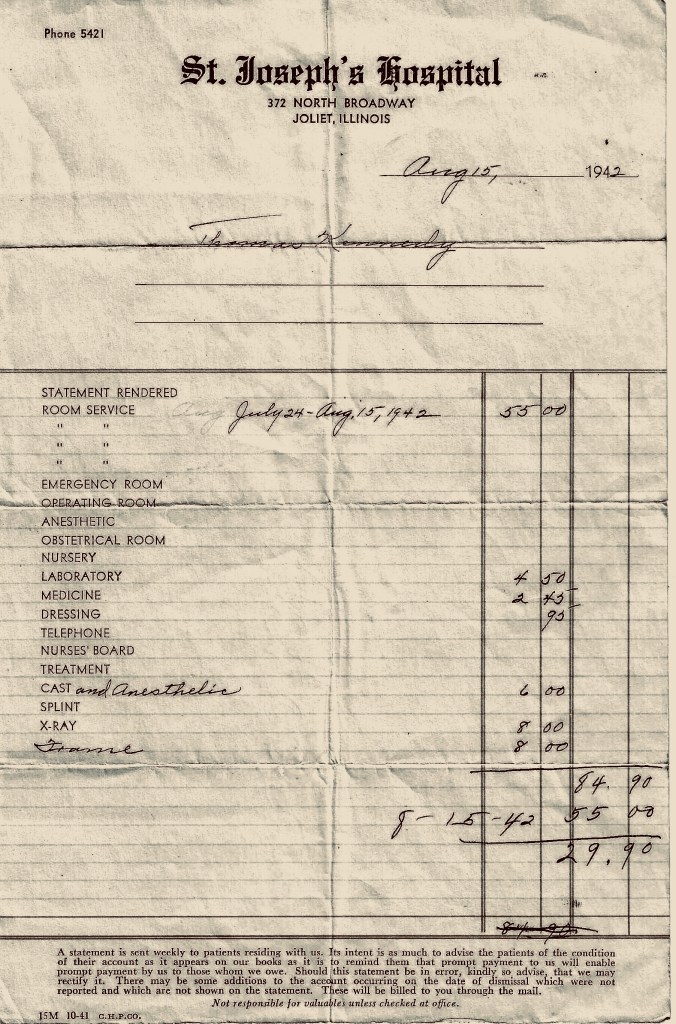 Phone 5421
St. Joseph's Hospital
372 NORTH BROADWAY
JOLIET, ILLINOIS
Aug 15, 1942
Thomas Kennedy
STATEMENT RENDERED
ROOM SERVICE Aug July 24 - Aug. 15, 1942 55 00
" "
" "
" "
EMERGENCY ROOM
OPERATING ROOM
ANESTHETIC
OBSTETRICAL ROOM
NURSERY
LABORATORY 4 50
MEDICINE 2 45
DRESSING 95
TELEPHONE
NURSES' BOARD
TREATMENT
CAST and Anesthetic 6 00
SPLINT
X-RAY 8 00
Frame 8 00
84. 90
8-15-42 55 00
29. 90
84 90
A statement is sent weekly to patients residing with us. Its intent is as much to advise the patients of the condition
of their account as it appears on our books as it is to remind them that prompt payment to us will enable
prompt payment by us to those whom we owe. Should this statement be in error, kindly so advise, that we may
rectify it. There may be some additions to the account occurring on the date of dismissal which were not
reported and which are not shown on the statement. These will be billed to you through the mail.
Not responsible for valuables unless checked at office.
15M 10-41 C.H.P.CO.